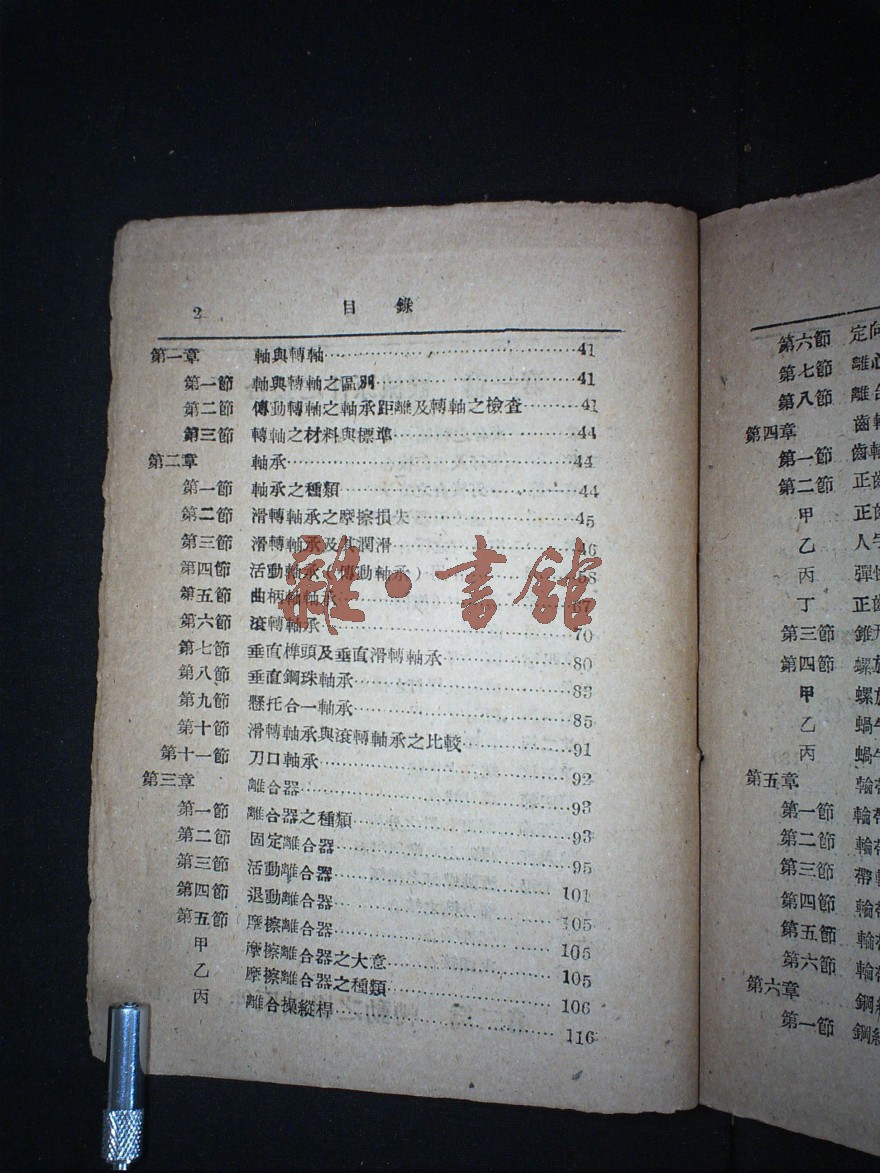 2 目錄
第一章 軸與轉軸……41
第一節 軸與轉軸之區別……41
第二節 傳動轉軸之軸承距離及轉軸之檢查……41
第三節 轉軸之材料與標準……44
第二章 軸承……44
第一節 軸承之種類……44
第二節 滑轉軸承之摩擦損失……45
第三節 滑轉軸承及其潤滑……46
第四節 活動軸承（傳動軸承）……
第五節 曲柄軸軸承……67
第六節 滾轉軸承……70
第七節 垂直榫頭及垂直滑轉軸承……80
第八節 垂直鋼珠軸承……83
第九節 懸托合一軸承……85
第十節 滑轉軸承與滾轉軸承之比較……91
第十一節 刀口軸承……92
第三章 離合器……93
第一節 離合器之種類……93
第二節 固定離合器……95
第三節 活動離合器……101
第四節 退動離合器……105
第五節 摩擦離合器……105
甲 摩擦離合器之大意……105
乙 摩擦離合器之種類……106
丙 離合操縱桿……116
雜·書館
第六節 定向
第七節 離心
第八節 離合
第四章 齒輪
第一節 齒輪
第二節 正齒
甲 正齒
乙 人字
丙 彈性
丁 正齒
第三節 錐形
第四節 螺旋
甲 螺旋
乙 蝸牛
丙 蝸牛
第五章 輪帶
第一節 輪帶
第二節 輪帶
第三節 帶輪
第四節 輪帶
第五節 輪帶
第六節 輪帶
第六章 鋼絲
第一節 鋼絲